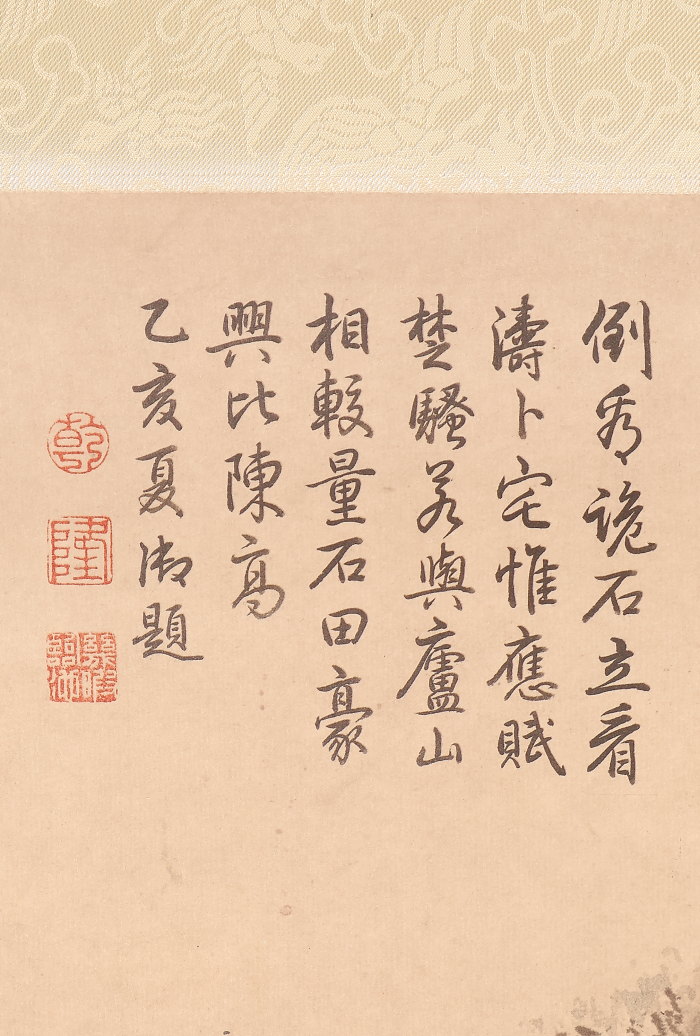 倒詭石立看
濤卜宅惟應賦
楚騷若與廬山
相較量石田豪
興比陳高
乙亥夏御題
乾
隆